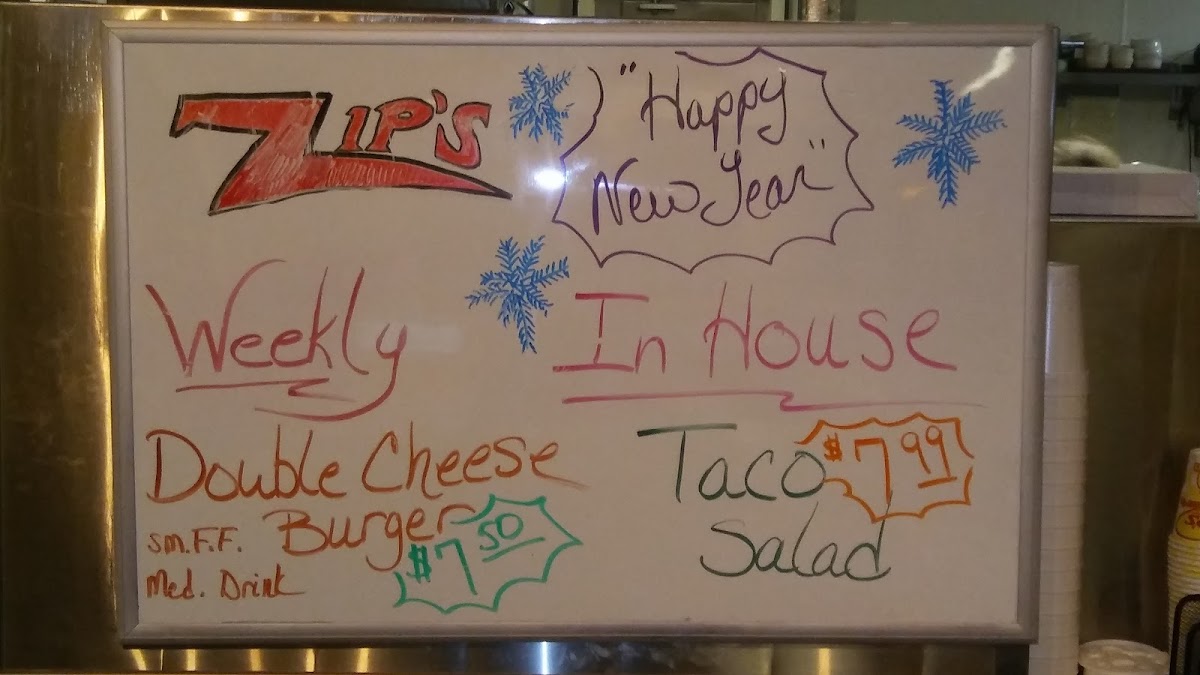 ZIP'S
"Happy
New Year"
Weekly
In House
Double Cheese
Burger $7 50
sm. F.F.
Med. Drink
Taco $7 99
Salad